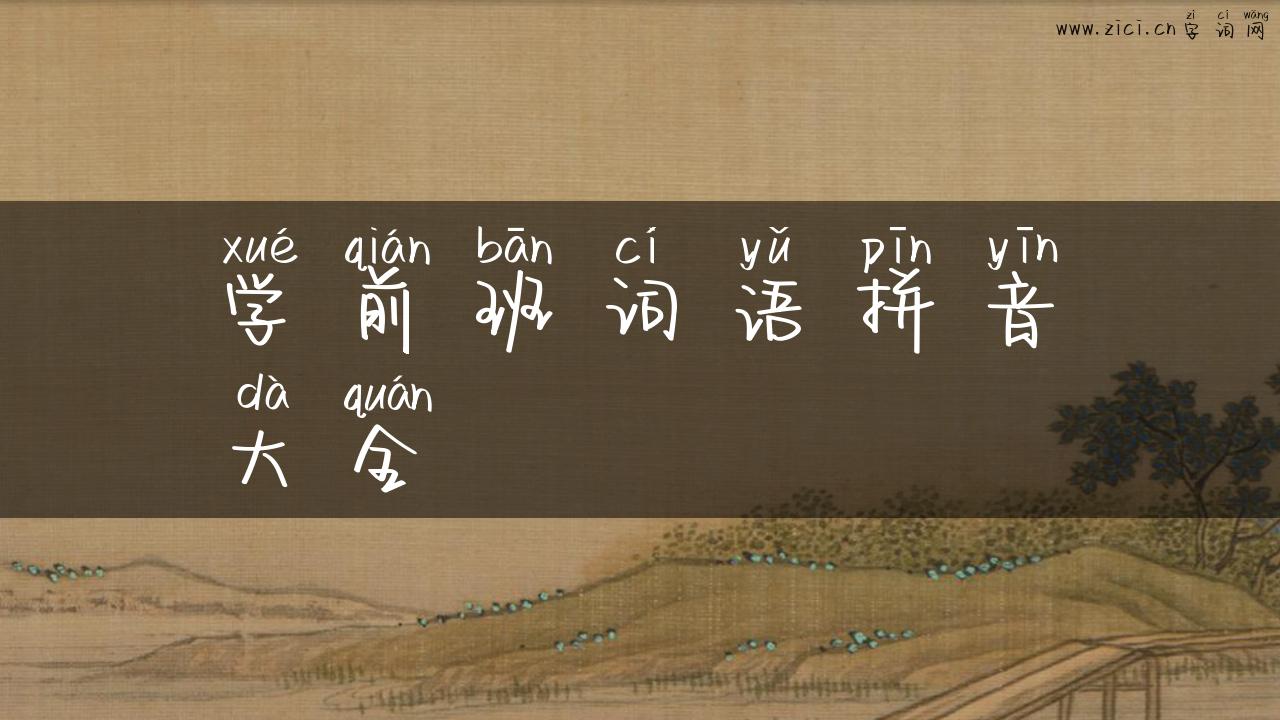 zì cí wǎng
www.zici.cn 字 词 网
xué qián bān cí yǔ pīn yīn
学 前 班 词 语 拼 音
dà quán
大 全